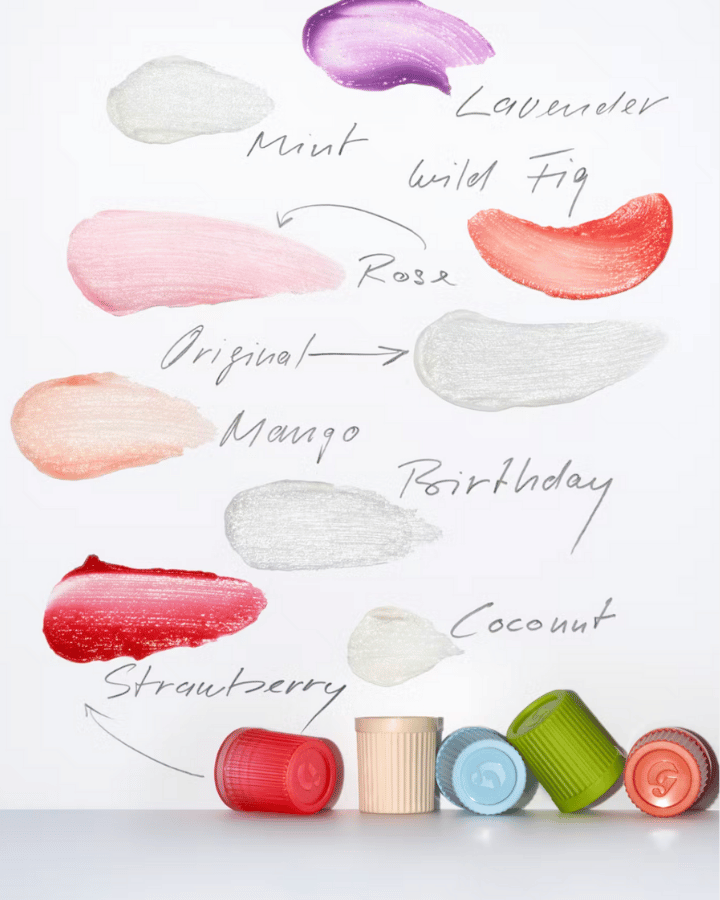 Lavender
Mint
Wild Fig
Rose
Original
Mango
Birthday
Coconut
Strawberry
G